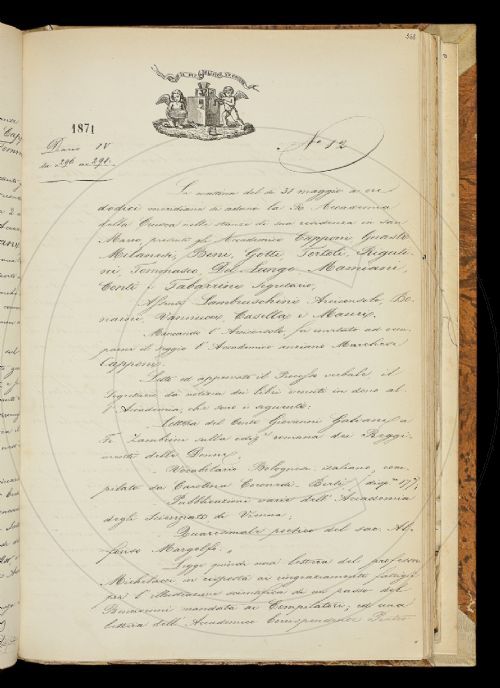 368
1871
Diario IV
da 296 a 298.
No 12
La mattina del dì 31 maggio a ore
dodici meridiane si adunò la R. Accademia
della Crusca nelle stanze di sua residenza in San
Marco, presenti gli Accademici Capponi, Guasti,
Milanesi, Bini, Gotti, Tortoli, Riguti-
ni, Tommaseo, Del Lungo, Mamiani,
Conti e Tabarrini Segretario,
Assenti Lambruschini Arciconsolo, Bo-
naini, Vannucci, Casella e Mauri.
Mancando l'Arciconsolo fu invitato ad occu-
pare il seggio l'Accademico anziano Marchese
Capponi.
Letto ed approvato il Processo verbale il
Segretario dà notizia dei libri venuti in dono al-
l'Accademia, che sono i seguenti:
Lettera del Conte Giovanni Galvani a
F. Zambrini sulla ediz. romana dei Reggi-
menti delle Donne.
Vocabolario Bolognese italiano, com-
pilato da Carolina Coronedi-Berti,
Pubblicazioni varie dell'Accademia
degli Scienziati di Vienna;
Quaresimale poetico del sac. Al-
fonso
Legge quindi una lettera del professore
in risposta ai ringraziamenti
per l'illustrazione scientifica di un passo del
mandata ai Compilatori; ed una
lettera dell'Accademico Corrispondente Pietro